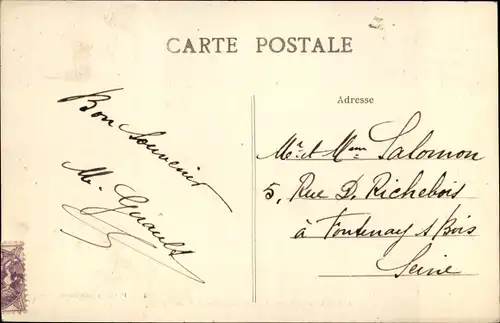 CARTE POSTALE
Bon Souvenir
M. Girault
Adresse
Mr et Mme Salomon
5, Rue D. Richebois
à Fontenay s/ Bois
Seine